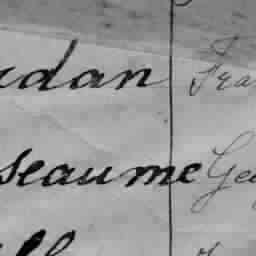 rdan Fra
seaume Geo